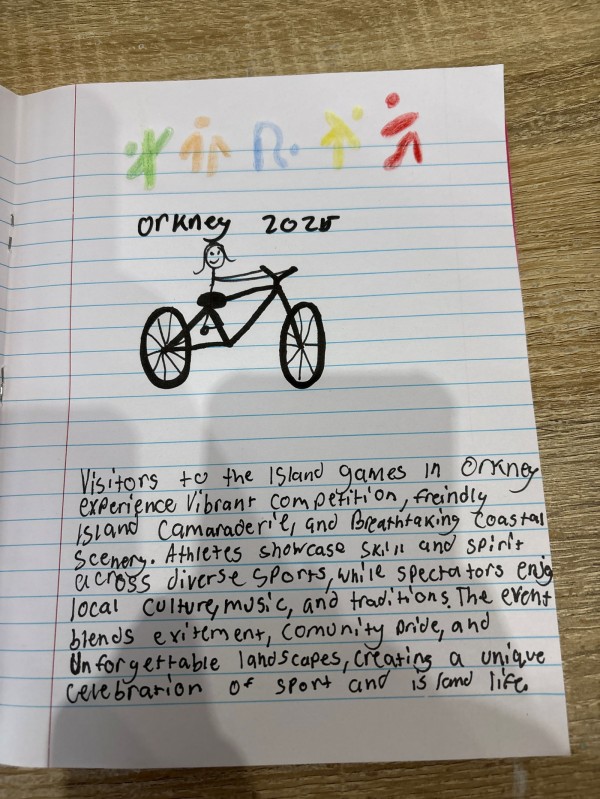 Orkney 2025
Visitors to the Island games in Orkney
experience Vibrant competition, freindly
Island Camaraderie, and Breathtaking Coastal
Scenery. Athletes showcase skill and spirit
across diverse sports, while spectators enjoy
local culture, music, and traditions. The event
blends exitement, Comunity Pride, and
Unforgettable landscapes, creating a unique
celebration of sport and island life.